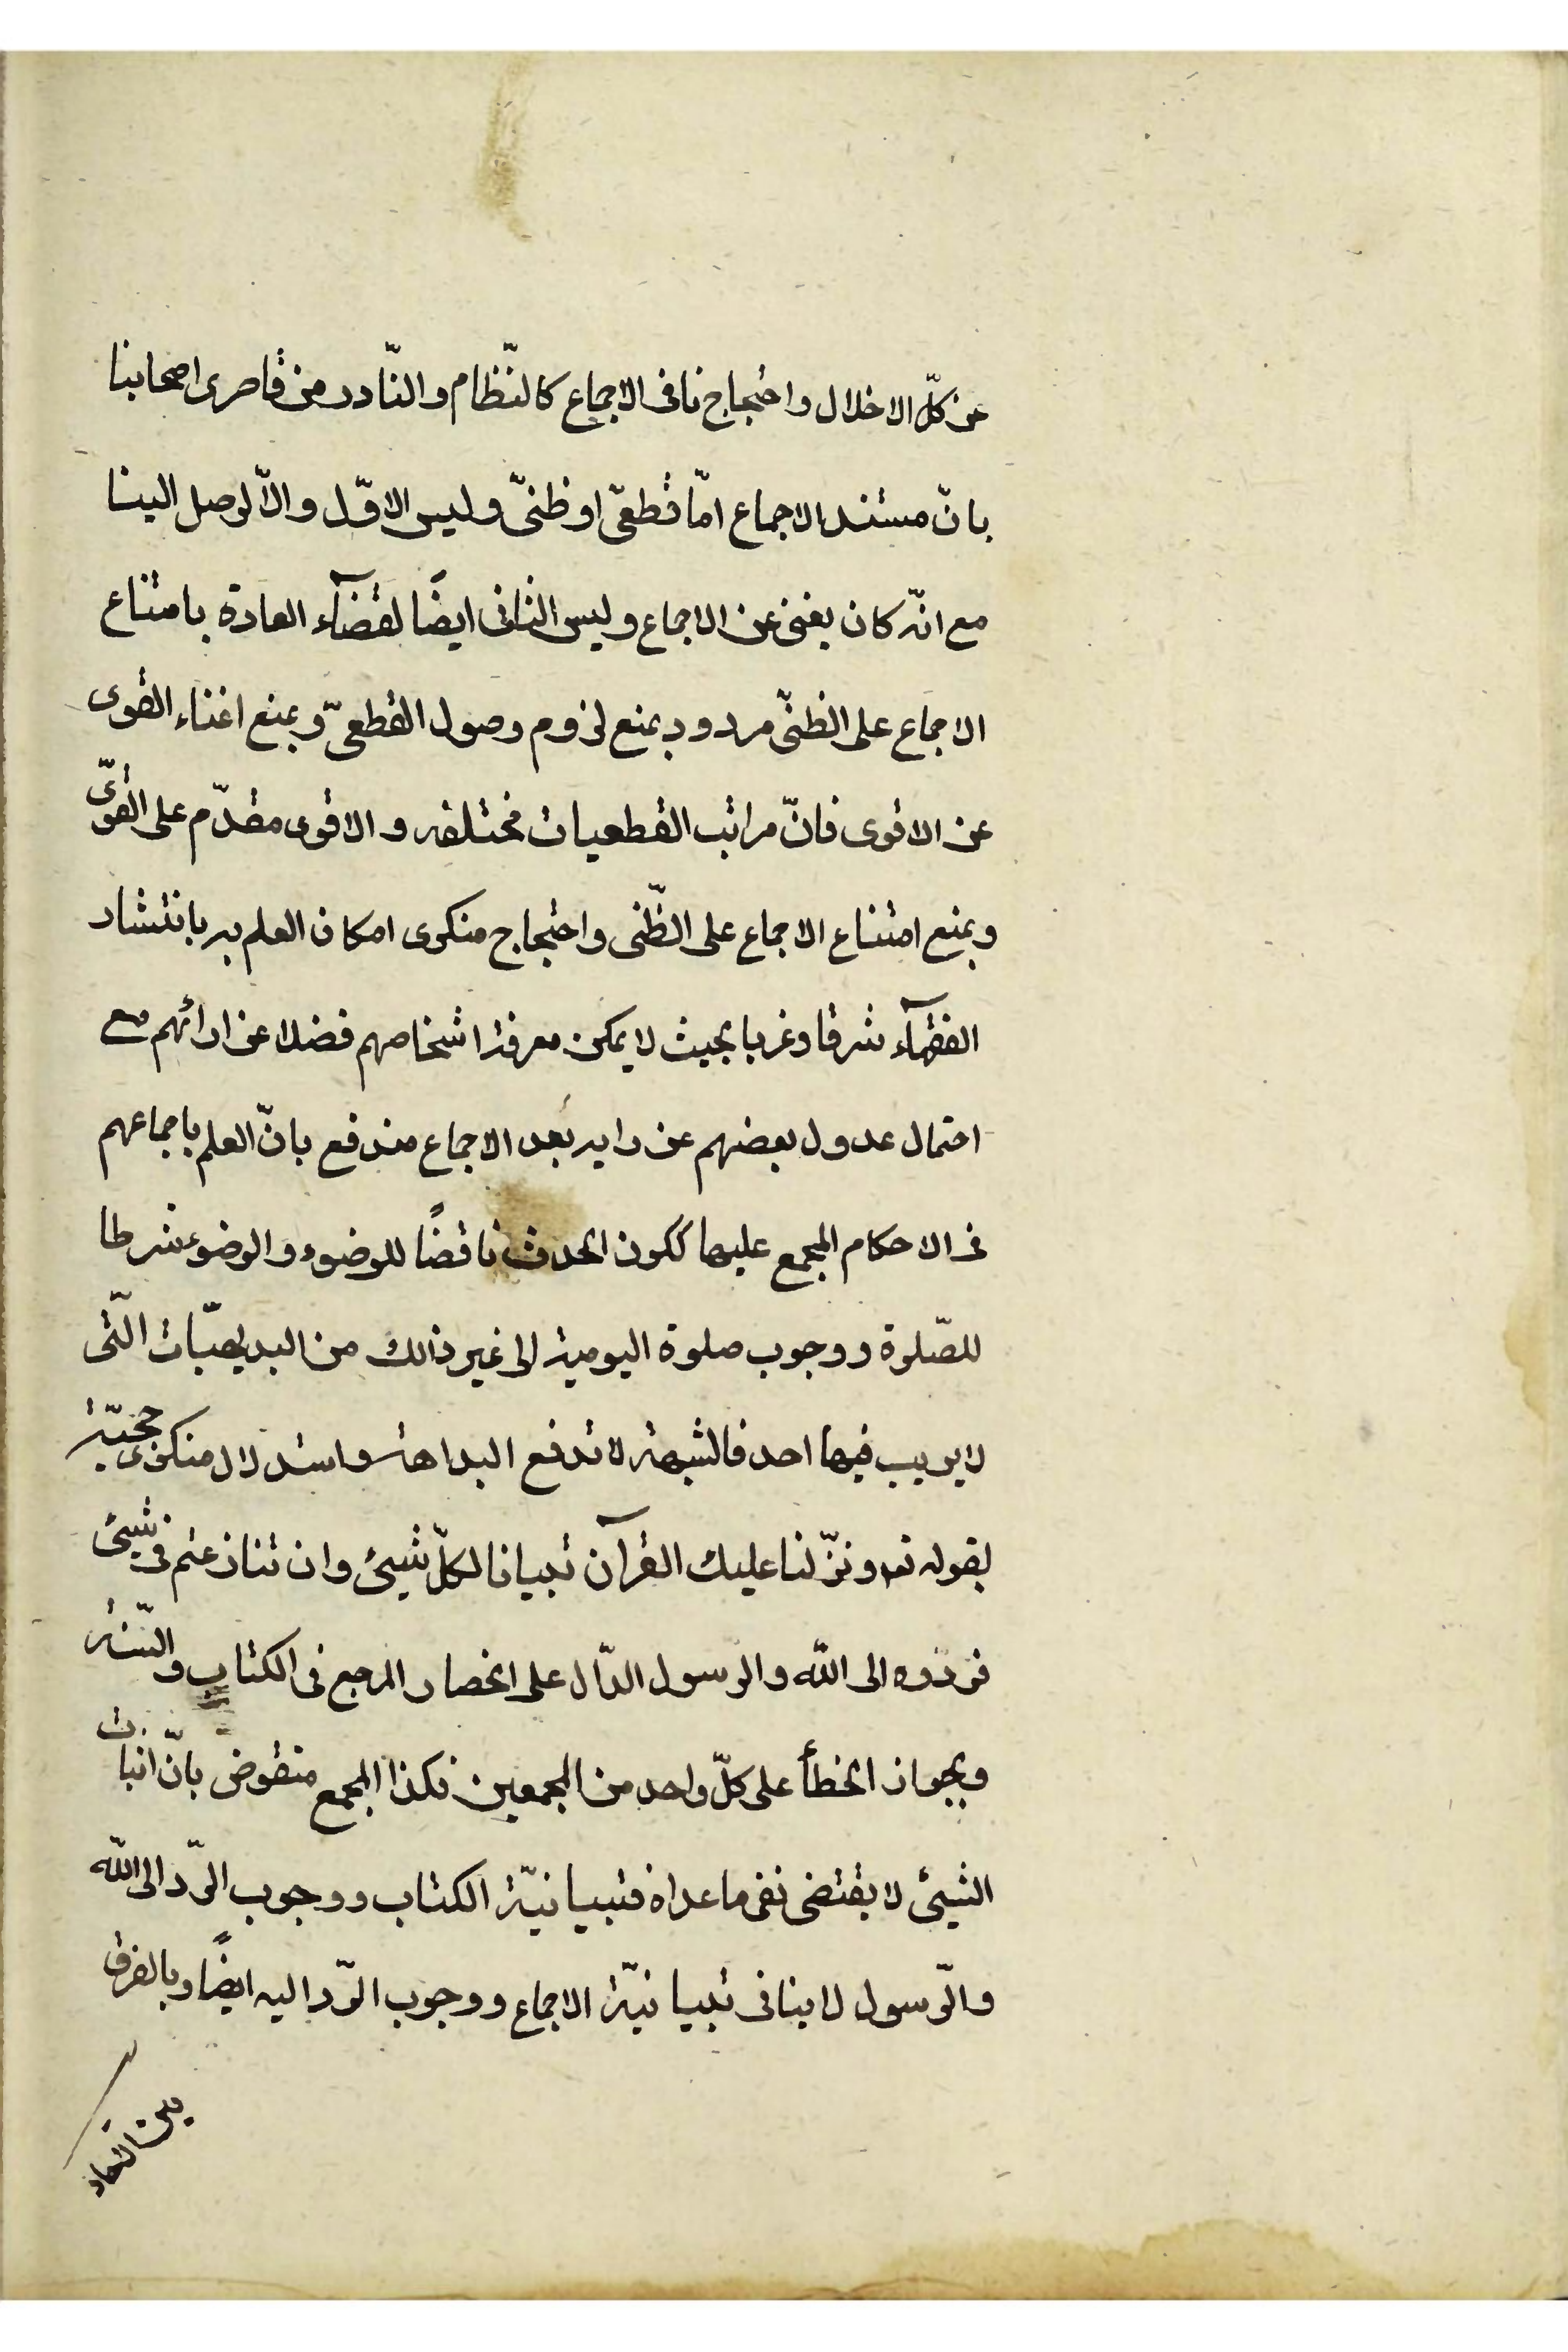 عن كلّ الاخلال واحتجاج نافى الاجماع كالنّظام والنّادر من قاصرى اصحابنا
بانّ مستند الاجماع امّا قطعىّ او ظنىّ وليس الاوّل والاّ لوصل الينا
مع انّه كان يغنى عن الاجماع وليس الثانى ايضًا لقضآء العادة بامتناع
الاجماع على الظنىّ مردود بمنع لزوم وصول القطعىّ وبمنع اغناء القوى
عن الاقوى فانّ مراتب القطعيات مختلفه والاقوى مقدّم على القوىّ
وبمنع امتناع الاجماع على الظّنى واحتجاج منكرى امكان العلم به بانتشار
الفقهآء شرقا وغربا بحيث لا يمكن معرفة اشخاصهم فضلا عن ارائهم مع
احتمال عدول بعضهم عن رايه بعد الاجماع مندفع بانّ العلم باجماعهم
فى الاحكام المجمع عليها ككون الحدث ناقضًا للوضوء والوضوء شرطا
للصّلوة ووجوب صلوة اليومية الى غير ذالك من البديهيّات الّتى
لا يريب فيها احد فالشبهة لا تدفع البداهة واستدلال منكرى حجيّته
لقوله تع ونزّلنا عليك القرآن تبيانا لكلّ شيئ وان تنازعتم فى شيئ
فردوه الى اللّه والرسول الدّال على انحصار المرجع فى الكتاب والسّنة
وبجواز الخطأ على كلّ واحد من المجمعين فكذا المجمع منقوض بانّ اثبات
الشيئ لا يقتضى نفى ما عداه فتبيانيّة الكتاب ووجوب الرّد الى اللّه
والرّسول لا ينافى تبيانيّة الاجماع ووجوب الرّد اليه ايضًا وبالفرق
بين اتحاد